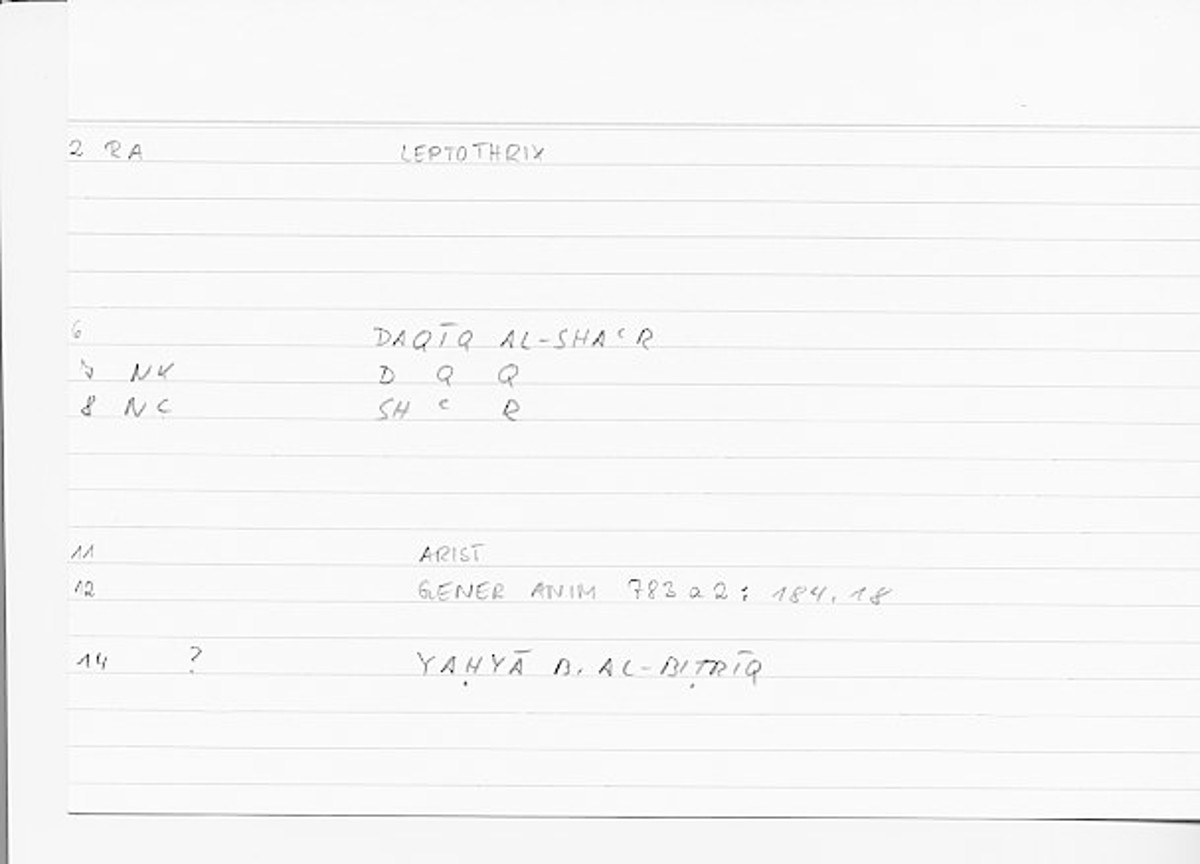 2 RA LEPTOTHRIX
6 DAQĪQ AL-SHAʿR
7 NK D Q Q
8 NC SH ʿ R
11 ARIST
12 GENER ANIM 783 a 2 : 184.18
14 ? YAḤYĀ B. AL-BIṬRĪQ